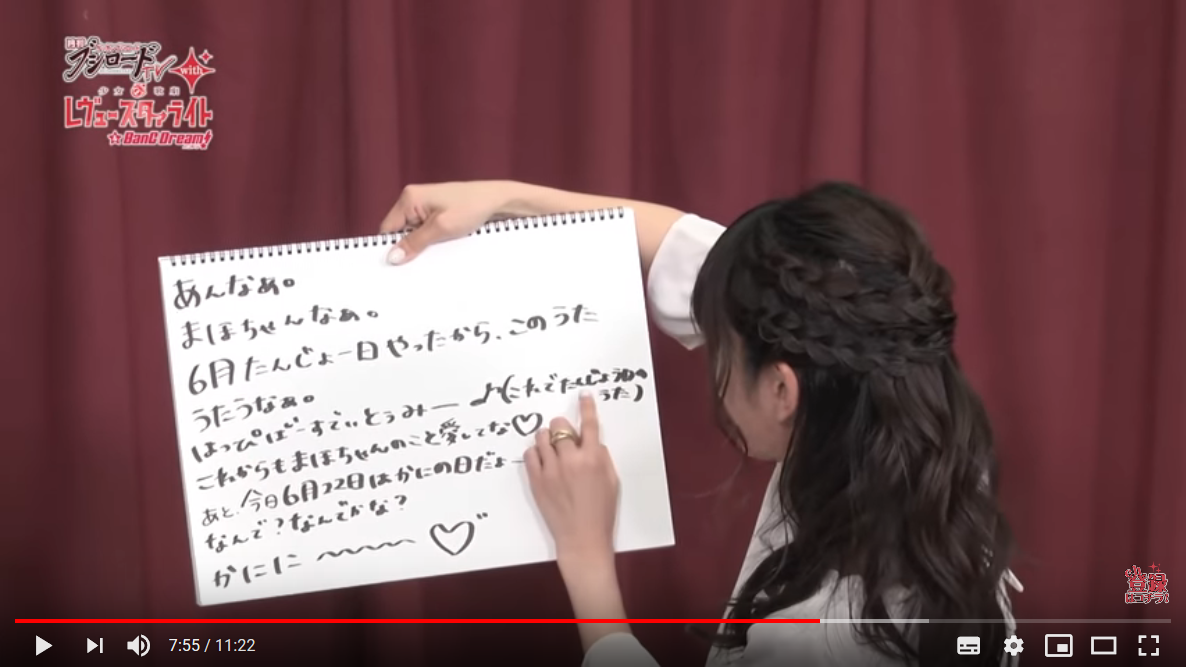 月刊
ブシロードTV
with
少女☆歌劇
レヴュースタァライト
☆BanG Dream!
あんなぁ。
まほちゃんなぁ。
6月たんじょー日やったから、このうた
うたうなぁ。
はっぴばーすでぃとぅみー ♪(これでたんじょう日の
うた)
これからもまほちゃんのこと愛してな♡
あと、今日6月22日はかにの日だよー
なんで?なんでかな?
かにに 〜〜〜 ♡"
登録
はコチラ!
7:55 / 11:22